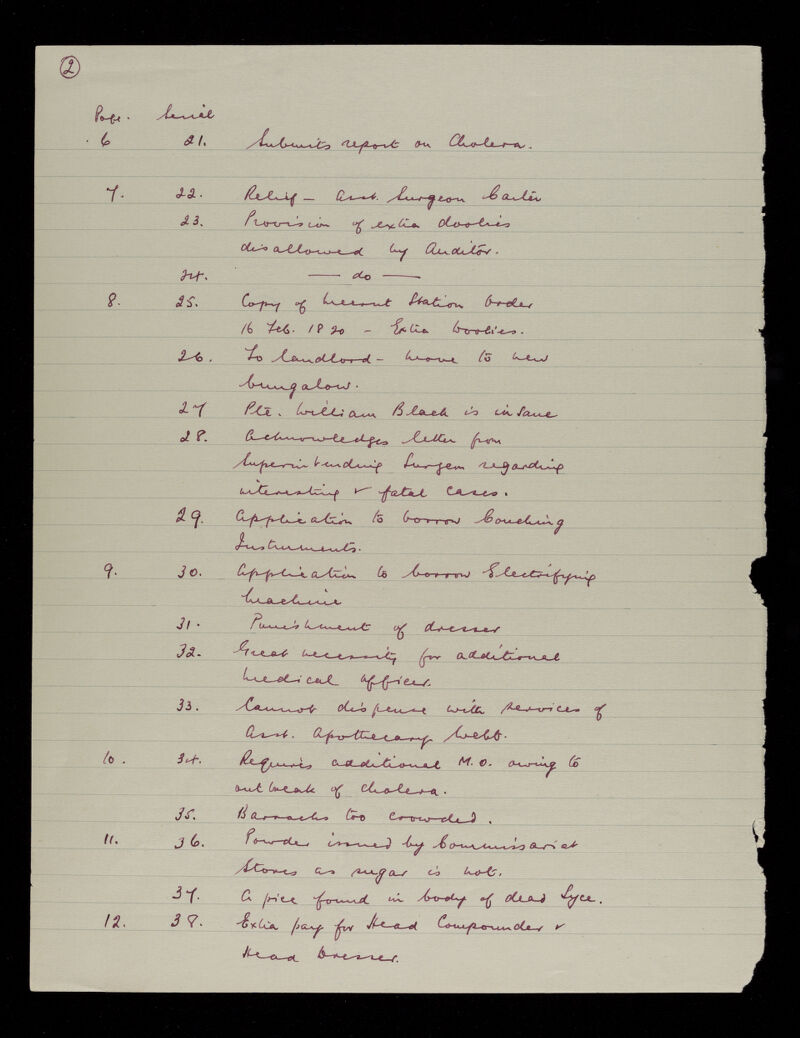 2
Page. Serial
6 21. Submits report on Cholera.
7. 22. Relief - Asst. Surgeon Carter
23. Provision of extra doolies
disallowed by Auditor.
24. — do —
8. 25. Copy of Meerut Station Order
16 Feb. 1820 - Extra Doolies.
26. To landlord - move to new
bungalow.
27 Pte. William Black is insane
28. Acknowledges letter from
Superintending Surgeon regarding
interesting & fatal cases.
29. Application to borrow Couching
Instruments.
9. 30. Application to borrow Electrifying
Machine
31. Punishment of dresser
32. Great necessity for additional
medical officer.
33. Cannot dispense with services of
Asst. Apothecary Webb.
10. 34. Requires additional M.O. owing to
outbreak of cholera.
35. Barracks too crowded.
11. 36. Powder issued by Commissariat
Stores as sugar is not.
37. A pice found in body of dead Syce.
12. 38. Extra pay for Head Compounder &
Head Dresser.